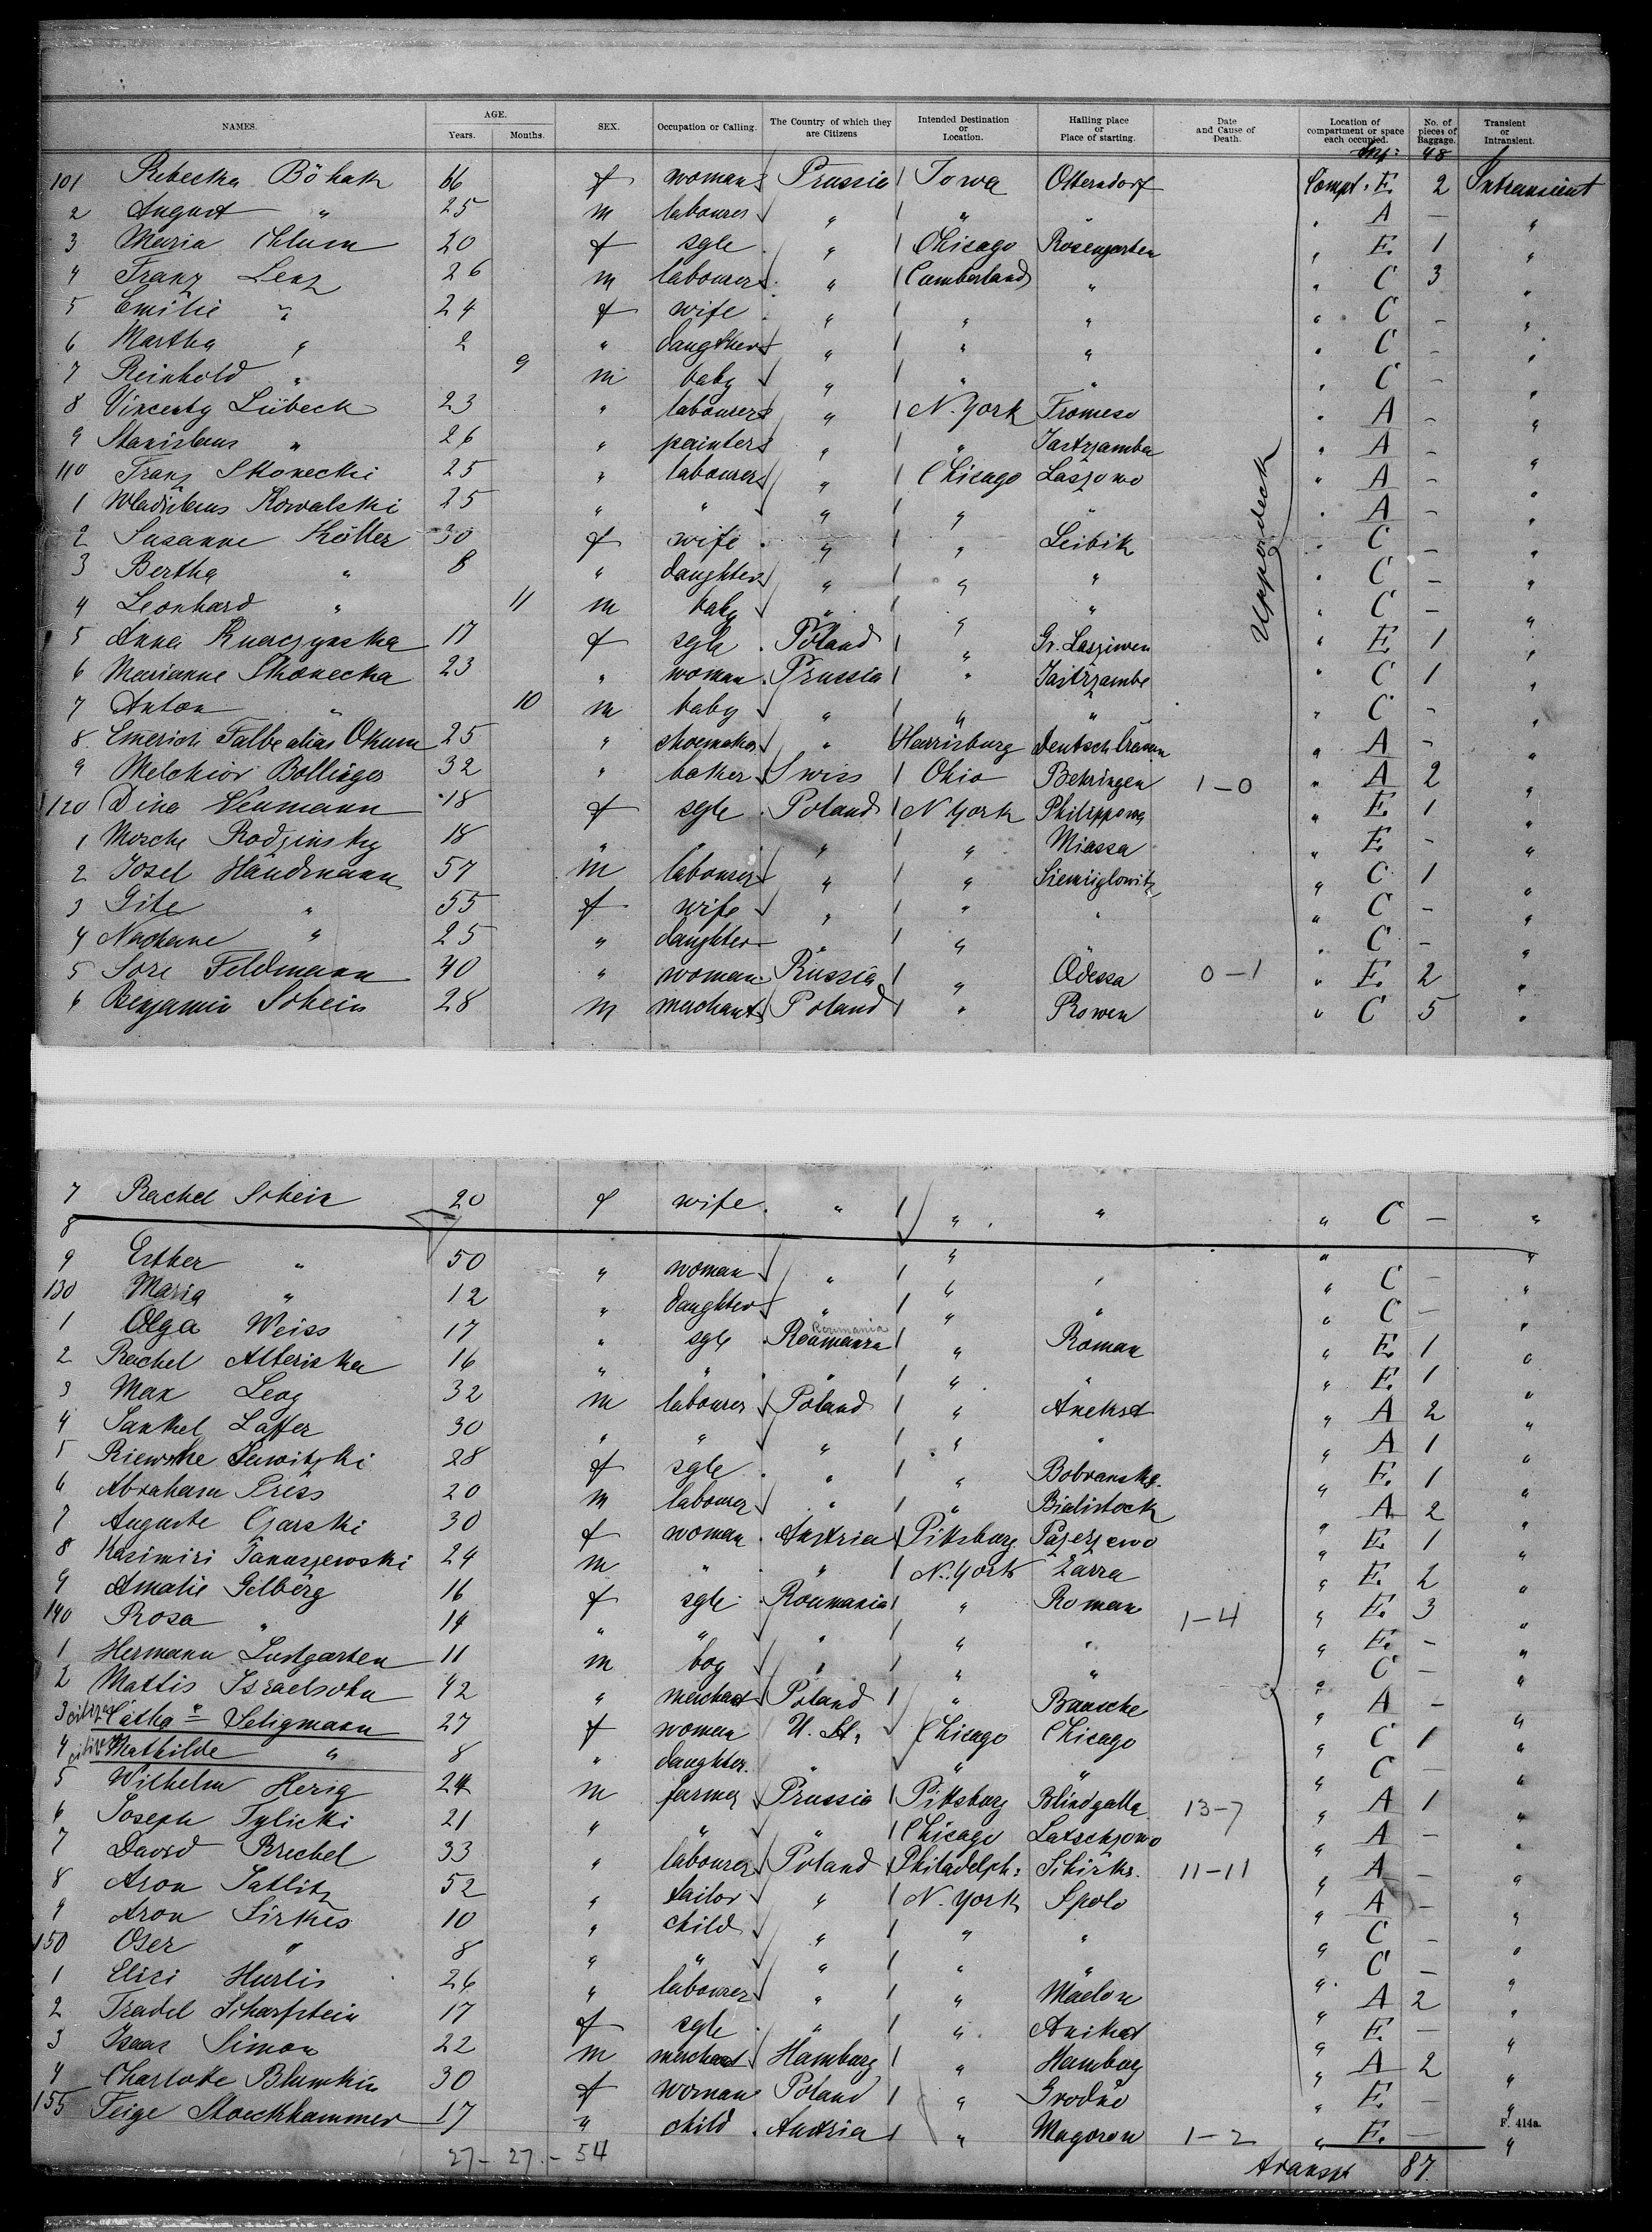 NAMES. AGE. Years. Months. SEX. Occupation or Calling. The Country of which they are Citizens Intended Destination or Location. Hailing place or Place of starting. Date and Cause of Death. Location of compartment or space each occupied. No. of pieces of Baggage. Transient or Intransient.
48
101 Rebecka Böhak 66 f woman Prussia Iowa Otterndorf Compt. E. 2 Intransient
2 August " 25 m labourer " " " " A — "
3 Maria 20 f sgle " Chicago Rosengarten " E. 1 "
4 Franz Lenz 26 m labourer " Cumberland " " C 3 "
5 Emilie " 24 f wife " " " " C — "
6 Martha " 2 " daugther " " " " C — "
7 Reinhold " 9 m baby " " " " C — "
8 Vincenty Lübeck 23 " labourer " N. York Tromeso " A — "
9 Stanislaus " 26 " painter " " Jastrzamba " A — "
110 Franz Skonecki 25 " labourer " Chicago Laszowo " A — "
1 Wladislaus Kowalski 25 " " " " " " A — "
2 Susanne Költer 30 f wife " " Leibik " C — "
3 Bertha " 8 " daughter " " " " C — "
4 Leonhard " 11 m baby " " " " C — "
5 Anna 17 f sgle Poland " Gr. Lasziwen " E 1 "
6 Marianne Skonecka 23 " woman Prussia " Jastrzambe " C 1 "
7 Anton " 10 m baby " " " " C — "
8 Emerich Falbe alias Okum 25 " shoemaker " Harrisburg Deutsch " A — "
9 Melchior Bollinger 32 " baker Swiss Ohio Behringen 1-0 " A 2 "
120 Dina Neumann 18 f sgle Poland N York Philippowa " E 1 "
1 Mosche Rodzinsky 18 " " " " Miassa " E. — "
2 Josel Händmann 57 m labourer " " " C 1 "
3 Gite " 55 f wife " " " " C — "
4 Nachane " 25 " daughter " " " C — "
5 Sore Feldmann 40 " woman Russia " Odessa 0-1 " E. 2 "
6 Benjamin Schein 28 m merchant Poland " Rowen " C 5 "
Upperdeck
7 Rachel Schein 20 f wife " " " " C — "
8 " " "
9 Esther " 50 " woman " " " " C — "
130 Maria " 12 " daughter " " " " C — "
1 Olga Weiss 17 " sgle Roumania Roumania " Roman " E. 1 "
2 Rachel Alteriska 16 " " " " " " E. 1 "
3 Max Leog 32 m labourer Poland " Anekst " A 2 "
4 Sankel Laffer 30 " " " " " " A 1 "
5 Riewske Sawitzki 28 f sgle " " " E. 1 "
6 Abraham Press 20 m labourer " " Bialistock " A 2 "
7 Auguste Czarski 30 f woman Austria Pittsburg Pazerzewo " E. 1 "
8 Kasimiri Januszewski 24 m " " N. York Zarra " E. 2 "
9 Amalie Gelberg 16 f sgle Roumania " Roman 1-4 " E. 3 "
140 Rosa " 14 " " " " " " E. — "
1 Hermann Lustgarten 11 m boy " " " " C — "
2 Mattis Israelsohn 42 " merchant Poland " Bausche " A — "
3 citizen Cätha Seligmann 27 f woman U. St. Chicago Chicago " C 1 "
4 citizen Mathilde " 8 " daughter " " " " C — "
5 Wilhelm Herig 24 m farmer Prussia Pittsburg Blindgalla 13-7 " A 1 "
6 Joseph Tylicki 21 " " " Chicago Latschzowo " A — "
7 David Brechel 33 " labourer Poland Philadelph: 11-11 " A — "
8 Aron Satlitz 52 " tailor " N. York Spolo " A — "
9 Aron Sirkes 10 " child " " " " C — "
150 Oser " 8 " " " " " " C — "
1 Elisi Hurlis 26 " labourer " " Maelon " A 2 "
2 Fradel Scharfstein 17 f sgle " " Anikst " E. — "
3 Isaac Simon 22 m merchant Hamburg " Hamburg " A 2 "
4 Charlotte Blumkin 30 f woman Poland " Grodno " E. — "
155 Feige Stoeckhammer 17 " child Austria " Magorow 1-2 " E. — "
F. 414a.
27 - 27 - 54 transpt 87.